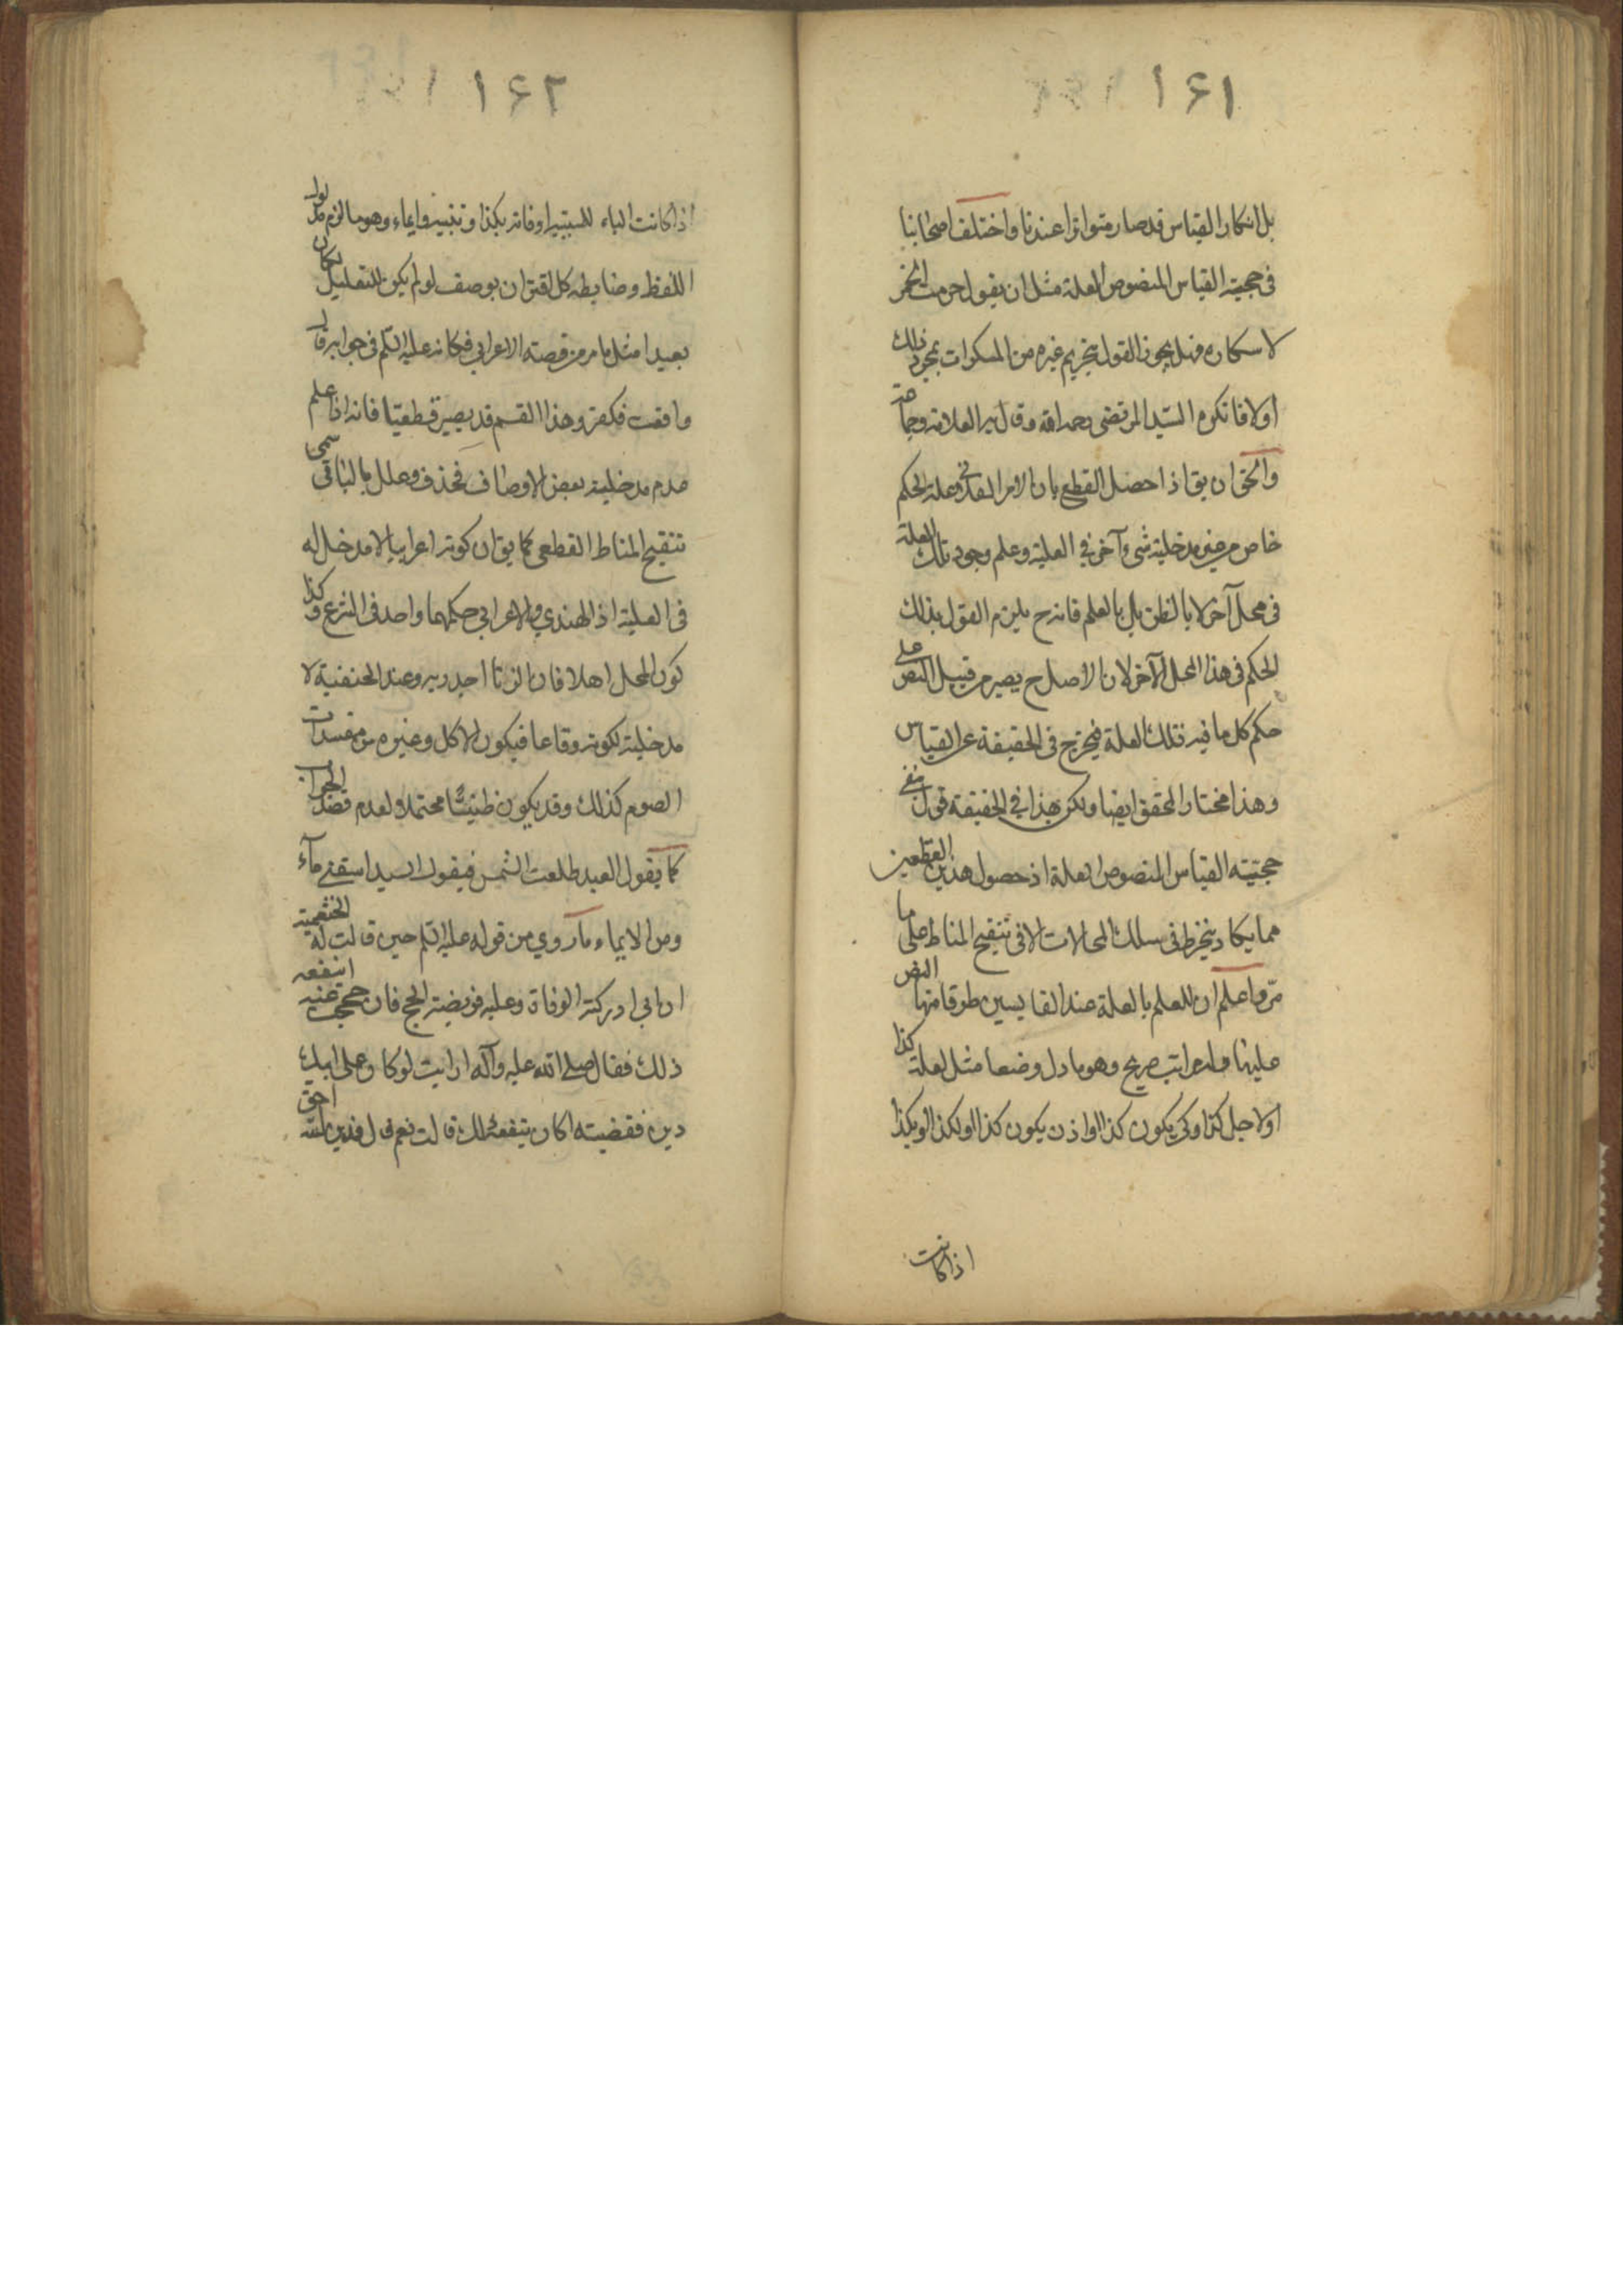 ١۶١
بل انكار القياس قد صار متواترا عندنا واختلف اصحابنا
فى حجية القياس المنصوص العلة مثل ان يقول حرمت الخمر
لاسكاره فهل يجوز القول بتحريم غيره من المسكرات بمجرد ذلك
اولا فانكره السيد المرتضى رحمه الله وقال به العلامة وجماعة
والحق ان يق اذا حصل القطع بان الامر الفلانى علة لحكم
خاص من غير مدخلية شىء آخر فى العلية وعلم وجود تلك العلة
فى محل آخر لا بالظن بل بالعلم فانه ح يلزم القول بذلك
الحكم فى هذا المحل الآخر لان الاصل ح يصير من قبيل النص على
حكم كل ما فيه تلك العلة فيخرج فى الحقيقة عن القياس
وهذا مختار المحقق ايضا ولكن هذا فى الحقيقة قول بنفى
حجية القياس المنصوص العلة اذ حصول هذين القطعين
مما يكاد ينخرط فى سلك المحالات الا فى تنقيح المناط على ما
مرّ واعلم ان للعلم بالعلة عند القايسين طرقا منها النص
عليها وله مراتب صريح وهو ما دل وضعا مثل لعلة كذا
او لاجل كذا وكى يكون كذا او اذن يكون كذا او لكذا او بكذا
اذا كانت
١۶٢
اذا كانت الباء للسببية او فانه بكذا وتنبيه وايماء وهو ما لزم مدلول
اللفظ وضابطه كل اقتران بوصف لو لم يكن للتعليل لكان
بعيدا مثل ما مر من قصة الاعرابى فكانه عليه السلم فى جوابه قال
واقعت فكفر وهذا القسم قد يصير قطعيا فانه اذا علم
عدم مدخلية بعض الاوصاف فحذف وعلل بالباقى سمى
تنقيح المناط القطعى كما يق ان كونه اعرابيا لا مدخل له
فى العلية اذ الهندي والاعرابي حكمهما واحد فى الشرع وكذا
كون المحل اهلا فان الزنا اجدر به وعند الحنفية لا
مدخلية لكونه وقاعا فيكون الاكل وغيره من مفسدات
الصوم كذلك وقد يكون ظنيًّا محتملا ولعدم قصد الجواب
كما يقول العبد طلعت الشمس فيقول السيد اسقنى مآء
ومن الايماء ما روي من قوله عليه السلم حين قالت له الخثعمية
ان ابى ادركته الوفاة وعليه فريضة الحج فان حججت عنه اينفعه
ذلك فقال صلى الله عليه وآله ارايت لو كان على ابيك
دين فقضيته اكان ينفعه ذلك قالت نعم قال فدين الله احق